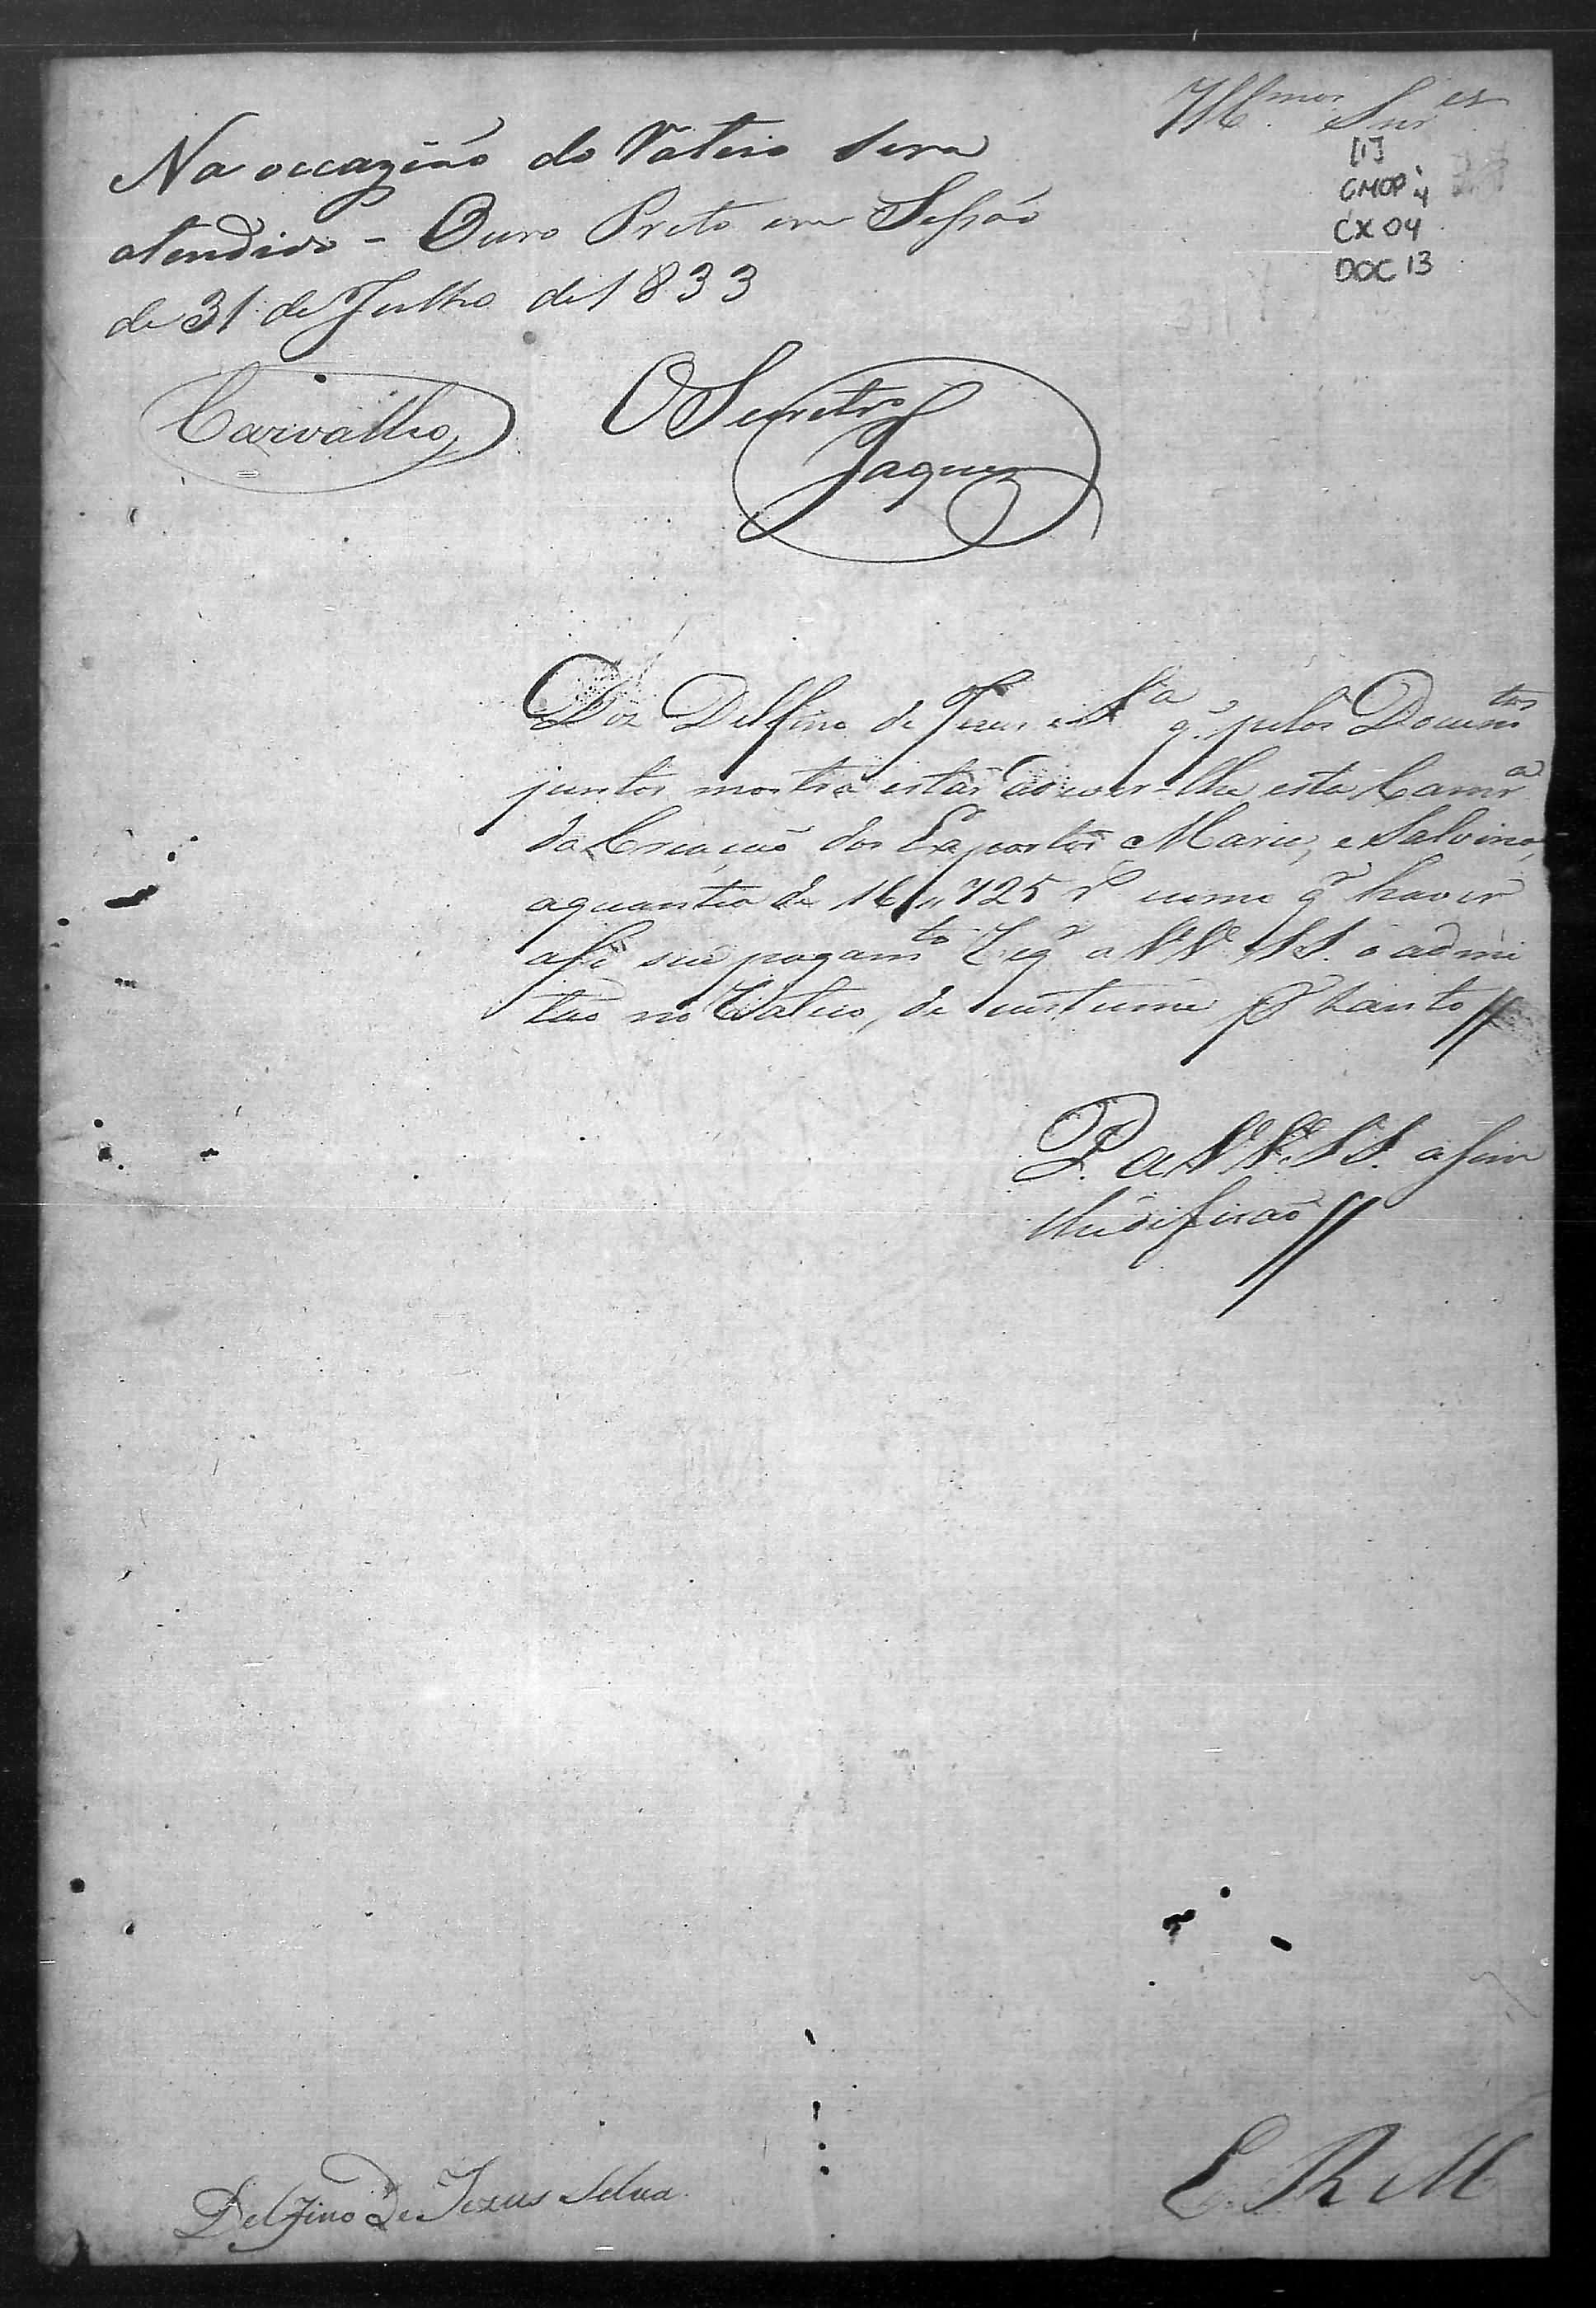 Illmos Snres
[1]
CMOP 4
CX 04
DOC 13
Na occazião do Rateio sera
atendido - Ouro Preto em Sessão
de 31 de Julho de 1833
Carvalho
O Secretro
Jaques
Diz Delfino de Jesus Sa q. pelos Documtos
juntos mostra estar a dever-lhe esta Camra
da Creação dos Expostos Maria, e Salvino,
aquantia de 16,,725 rs e como qr haver
seu pagamto Req.r a VV. SS. o admi
tão no Rateio, de custume pr tanto //
P. a VV. SS. assim
lhe difirão //
E. R. M
Delfino De Jezus Selva